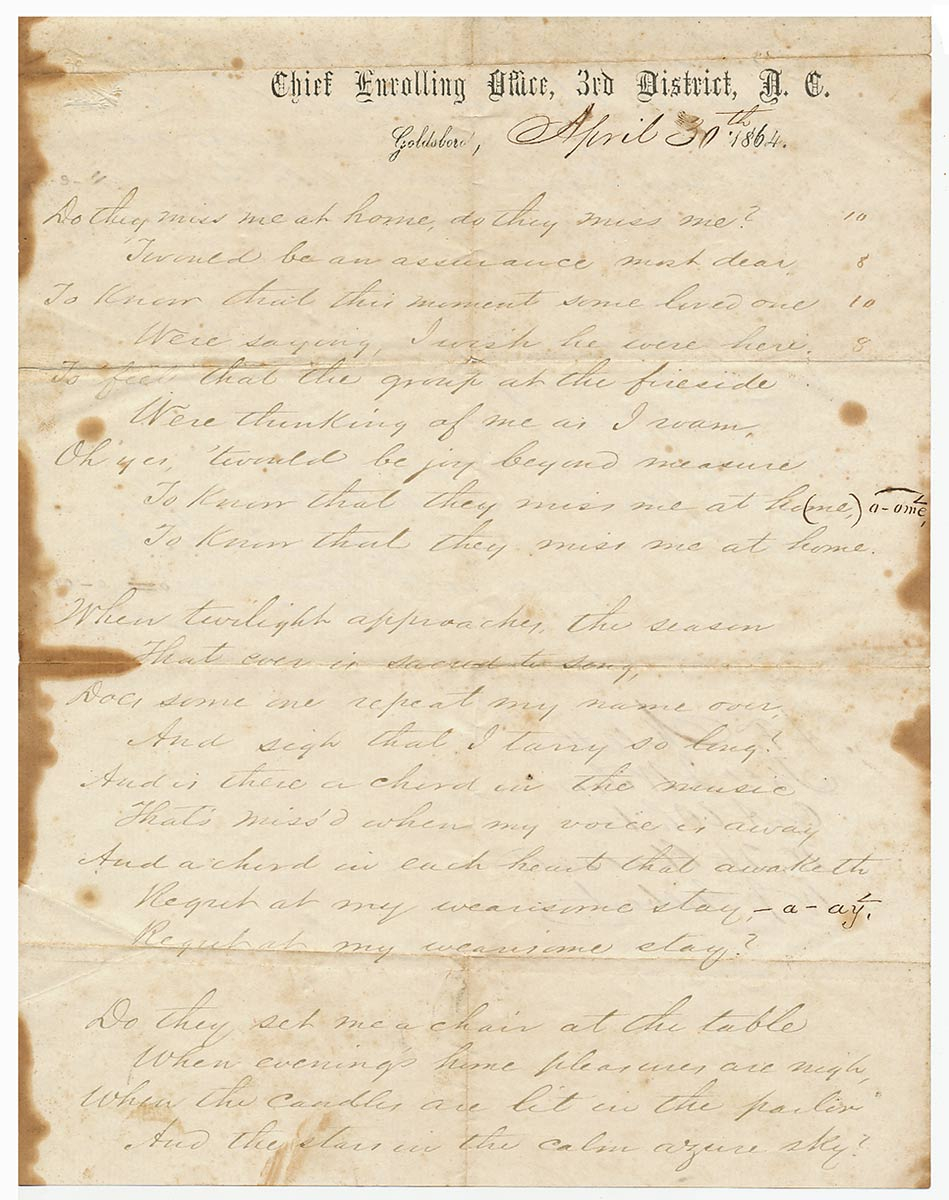 Chief Enrolling Office, 3rd District, N. C.
Goldsboro', April 30th 1864.
Do they miss me at home, do they miss me? 10
'Twould be an assurance most dear, 8
To Know that this moment some loved one 10
Were saying, I wish he were here, 8
To feel that the group at the fireside
Were thinking of me as I roam,
Oh yes, 'twould be joy beyond measure
To Know that they miss me at home, (ome,) o-ome,
To Know that they miss me at home.
When twilight approaches, the season
That ever is sacred to song,
Does some one repeat my name over,
And sigh that I tarry so long?
And is there a chord in the music
That's miss'd when my voice is away,
And a chord in each heart that awaketh
Regret at my wearisome stay, - a - ay,
Regret at my wearisome stay?
Do they set me a chair at the table
When evening's home pleasures are nigh,
When the candles are lit in the parlor
And the stars in the calm azure sky?